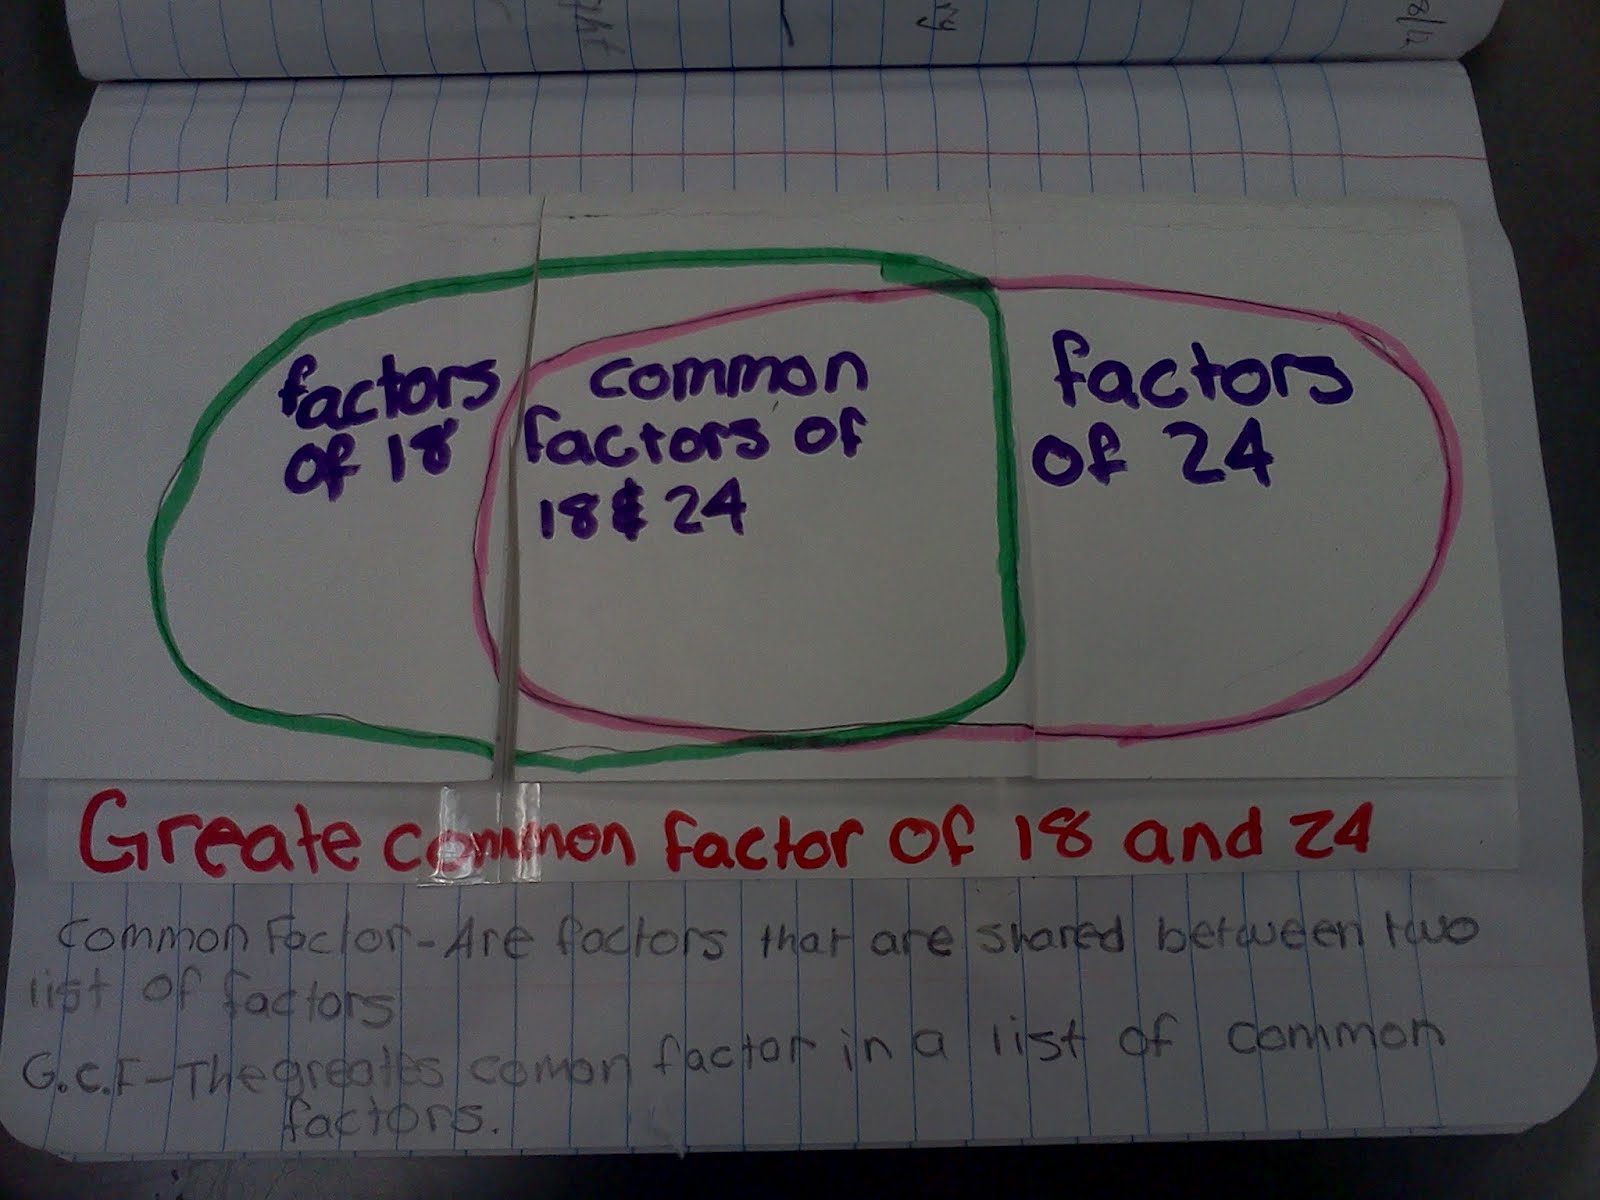 factors
of 18
common
factors of
18 & 24
factors
of 24
Greate common factor of 18 and 24
Common Factor - Are factors that are shared between two
list of factors
G.C.F - The greates comon factor in a list of common
factors.